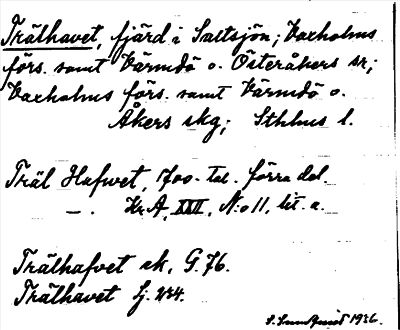 Trälhavet, fjärd i Saltsjön; Vaxholms
förs. samt Värmdö o. Österåkers sr;
Vaxholms förs. samt Värmdö o.
Åkers skg; Sthlms l.
Träl Hafwet, 700-tal. förra del.
—. Kr. A, XXII, N:o 11, lit. a.
Trälhafvet sk, G. 76.
Trälhavet Sj. 234.
S. Sundquist 1926.